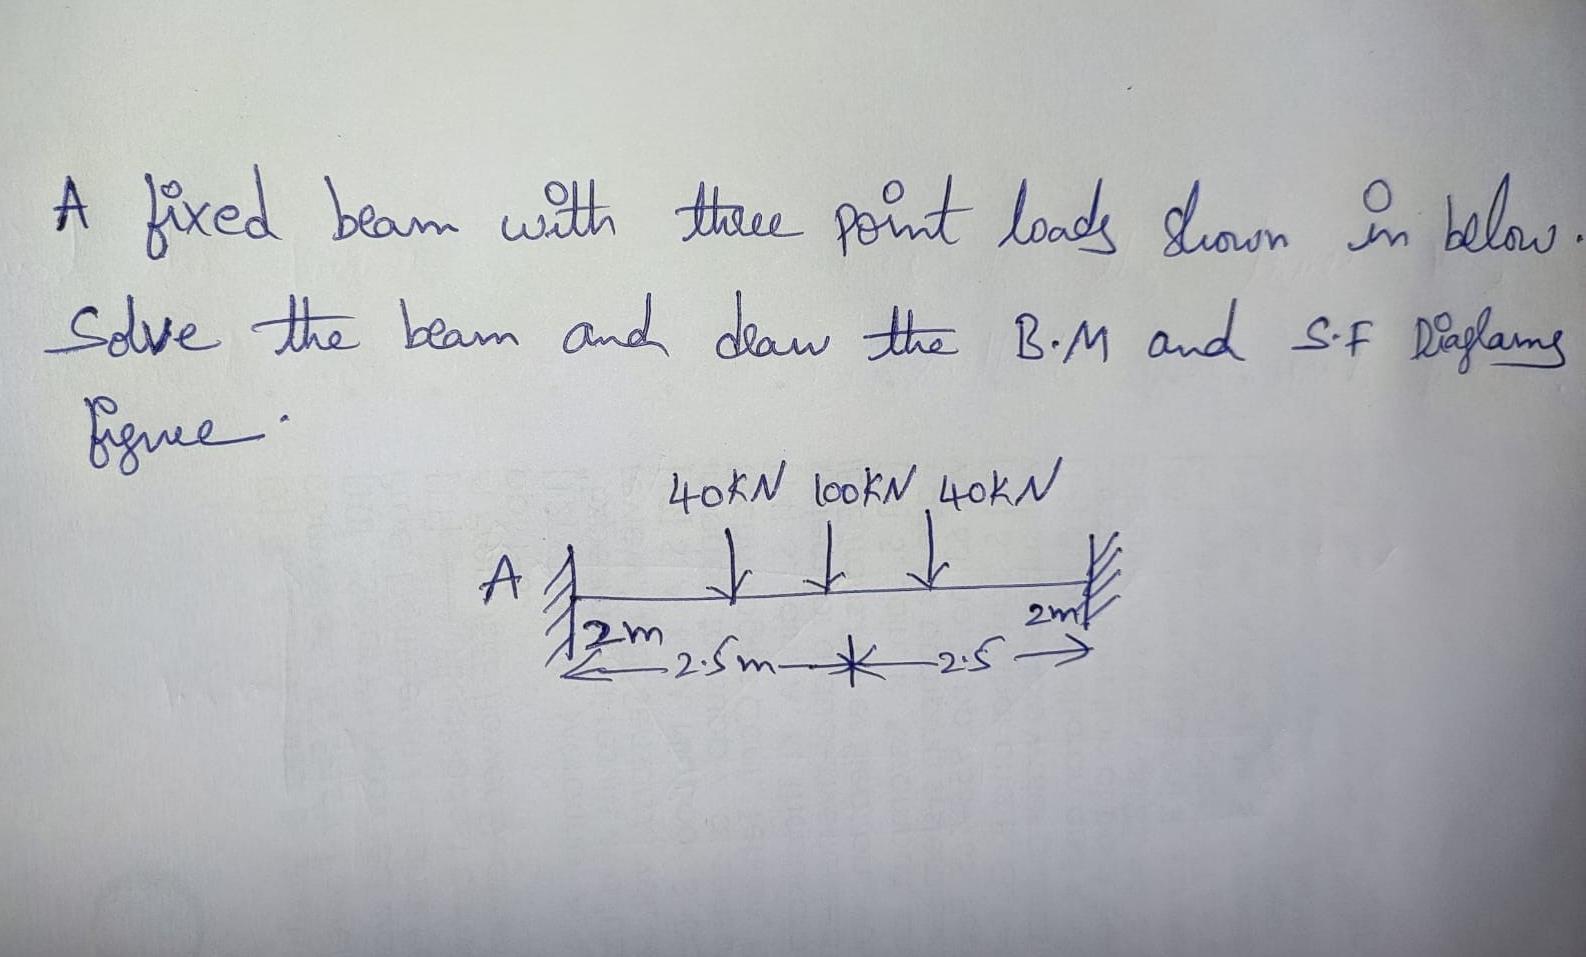 A fixed beam with three point loads shown in below.
Solve the beam and draw the B.M and S.F Diaglams
figure.
40KN 100KN 40KN
A
2m 2m
2.5m 2.5